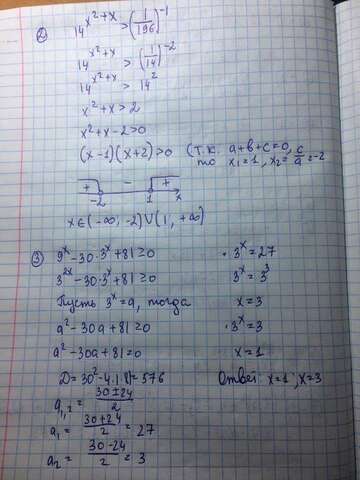 ② 14^(x²+x) > (1/196)^(-1)
14^(x²+x) > (1/14)^(-2)
14^(x²+x) > 14²
x²+x>2
x²+x-2>0
(x-1)(x+2)>0 (т.к. a+b+c=0,
то x₁=1, x₂=c/a=-2
+ - +
-2 1 x
x∈(-∞, -2)∪(1, +∞)
③ 9^x-30·3^x+81≥0
3^(2x)-30·3^x+81≥0
Пусть 3^x=a, тогда
a²-30a+81≥0
a²-30a+81=0
D=30²-4·1·8)=576
a₁,₂=(30±24)/2
a₁=(30+24)/2=27
a₂=(30-24)/2=3
·3^x=27
3^x=3³
x=3
·3^x=3
x=1
Ответ: x=1; x=3